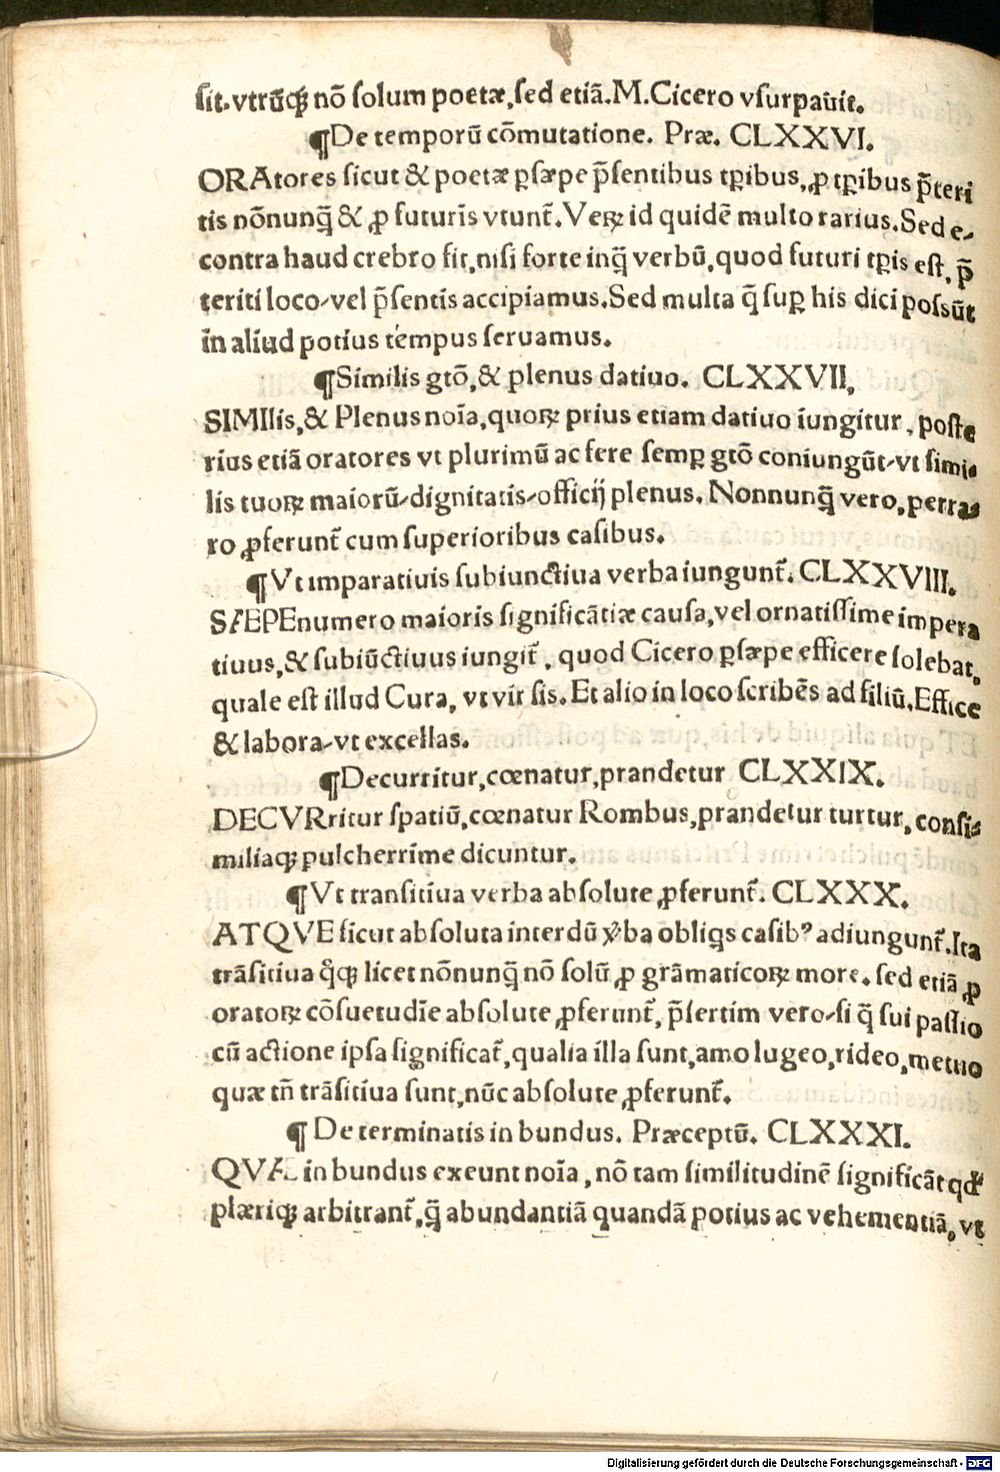 sit. vtrũqꝫ nõ solum poetæ, sed etiã. M. Cicero vsurpauit.
¶De temporũ cõmutatione. Præ. CLXXVI.
ORAtores sicut & poetæ ꝑsæpe p̃sentibus tꝑibus, ꝓ tꝑibus p̃teri
tis nõnunq̃ & ꝓ futuris vtunt᷑. Veꝝ id quidẽ multo rarius. Sed e⸗
contra haud crebro fit, nisi forte inq̃ verbũ, quod futuri tꝑis est, p̃
teriti loco⸗vel p̃sentis accipiamus. Sed multa q̃ suꝑ his dici possũt
in aliud potius tempus seruamus.
¶Similis gtõ, & plenus datiuo. CLXXVII,
SIMIlis, & Plenus noĩa, quoꝝ prius etiam datiuo iungitur, poste
rius etiã oratores vt plurimũ ac fere semꝑ gtõ coniungũt⸗vt simi⸗
lis tuoꝝ maiorũ⸗dignitatis⸗officij plenus. Nonnunq̃ vero, perra⸗
ro ꝓferunt᷑ cum superioribus casibus.
¶Vt imparatiuis subiunctiua verba iungunt᷑. CLXXVIII.
SÆPEnumero maioris significãtiæ causa, vel ornatissime impera
tiuus, & subiũctiuus iungit᷑, quod Cicero ꝑsæpe efficere solebat,
quale est illud Cura, vt vir sis. Et alio in loco scribẽs ad filiũ. Effice
& labora⸗vt excellas.
¶Decurritur, cœnatur, prandetur CLXXIX.
DECVRritur spatiũ, cœnatur Rombus, prandetur turtur, consi⸗
miliaqꝫ pulcherrime dicuntur.
¶Vt transitiua verba absolute ꝓferunt᷑. CLXXX.
ATQVE sicut absoluta interdũ v̾ba obliqs casibꝰ adiungunt᷑. Ita
trãsitiua q̊qꝫ licet nõnunq̃ nõ solũ ꝓ grãmaticoꝝ more. sed etiã ꝓ
oratoꝝ cõsuetudĩe absolute ꝓferunt᷑, p̃sertim vero⸗si q̃ sui passio
cũ actione ipsa significat᷑, qualia illa sunt, amo lugeo, rideo, metuo
quæ tñ trãsitiua sunt, nũc absolute ꝓferunt᷑.
¶De terminatis in bundus. Præceptũ. CLXXXI.
QVÆ in bundus exeunt noĩa, nõ tam similitudinẽ significãt qđ
plæriqꝫ arbitrant᷑, q̃ abundantiã quandã potius ac vehementiã, vt
Digitalisierung gefördert durch die Deutsche Forschungsgemeinschaft - DFG